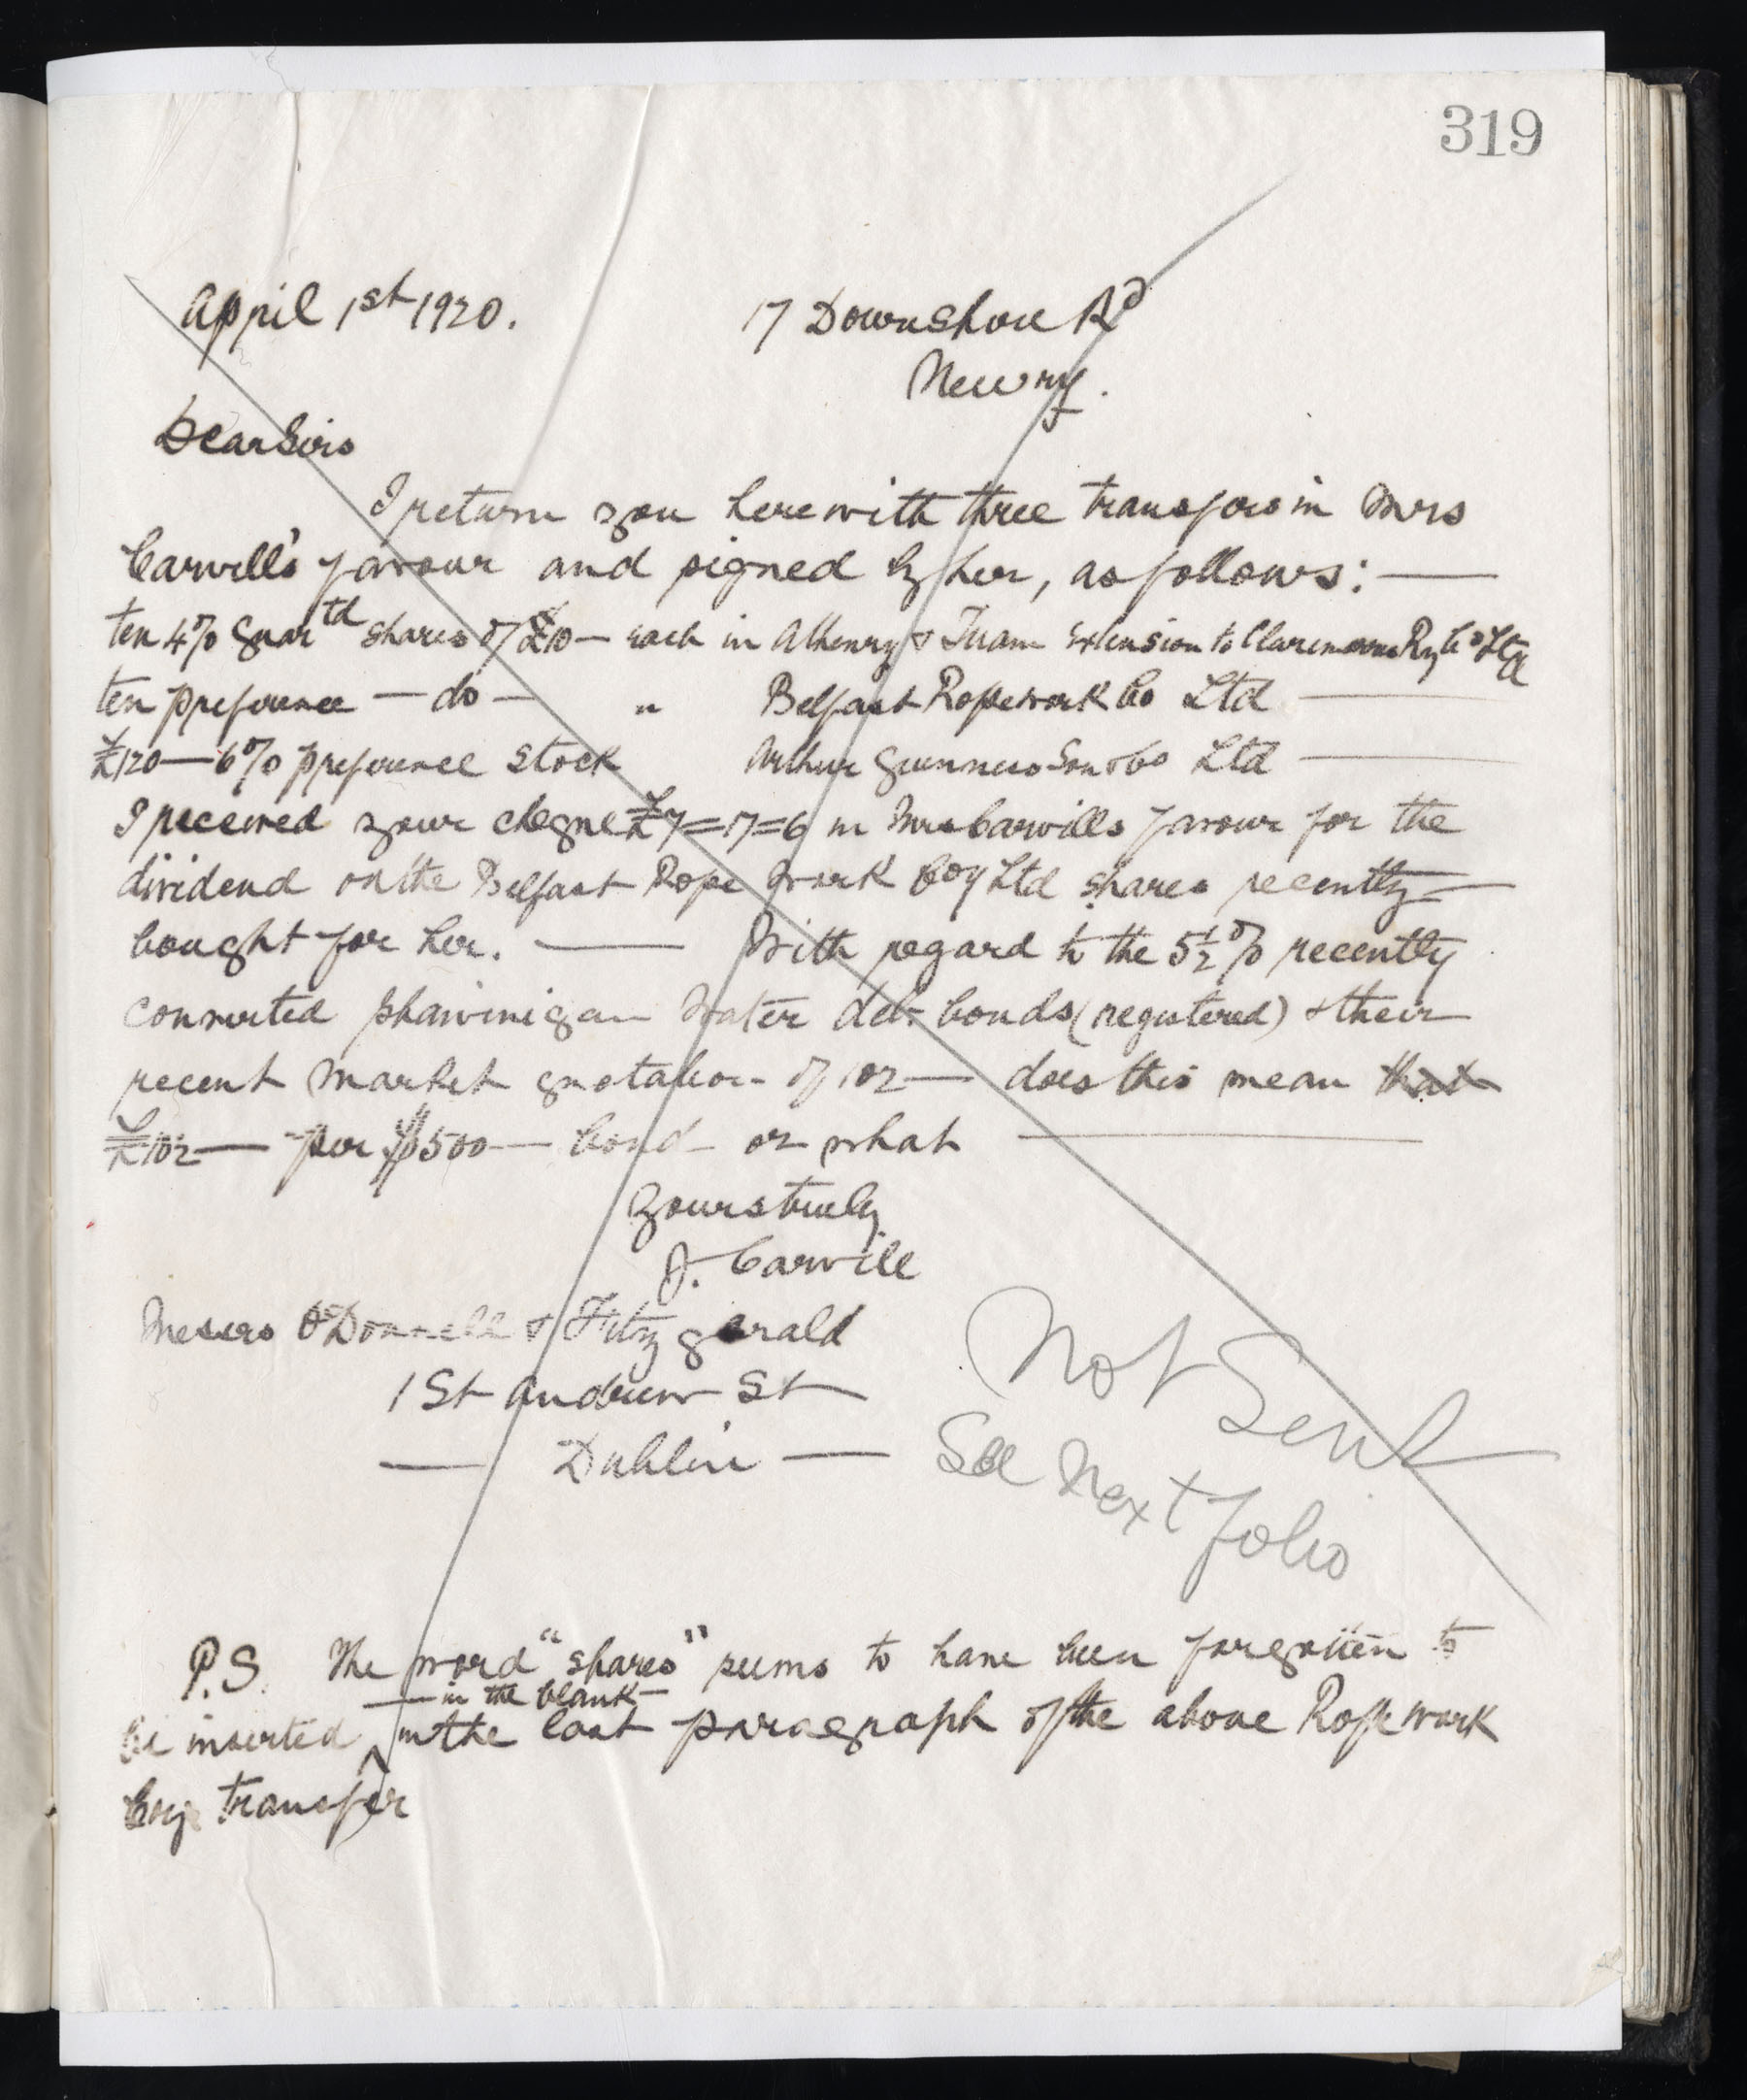 319
April 1st 1920. 17 Downshire Rd
Newry.
Dear Sirs
I return you herewith three transfers in Mrs
Carvill's favour and signed by her, as follows: —
ten 4% Guartd shares of £10 — each in Athenry & Tuam Extension to Claremorris Ry Co Ltd
ten preference — do — " Belfast Ropework Co Ltd —
£120 — 6% preference stock Arthur Guinness Son & Co Ltd —
I received your cheque £7=17=6 in Mrs Carvills favour for the
dividend on the Belfast Rope Work Coy Ltd shares recently —
bought for her. — With regard to the 5½% recently
converted Shawinigan Water deb. bonds (registered) & their
recent market quotation of 102 — does this mean that
£102 — per $500 — bond — or what —
Yours truly
J. Carvill
Messrs O'Donnell & Fitzgerald
1 St Andrew St
— Dublin —
Not Sent
See Next folio
P.S. The word "shares" seems to have been forgotten to
— in the blank —
be inserted ^ in the last paragraph of the above Rope Work
Coy transfer